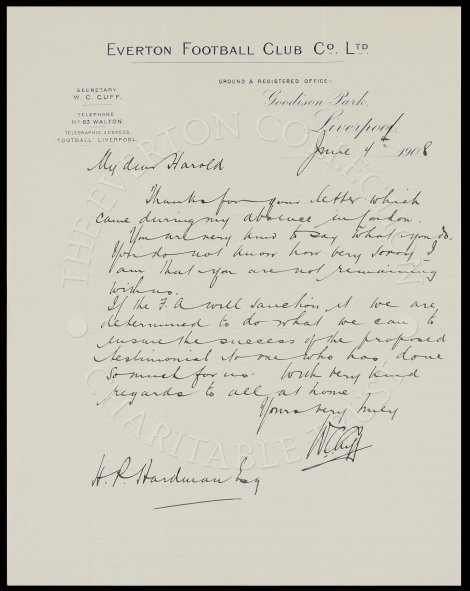 EVERTON FOOTBALL CLUB CO. LTD
GROUND & REGISTERED OFFICE:-
SECRETARY
W. C. CUFF.
Goodison Park,
TELEPHONE
NO 63 WALTON.
Liverpool,
TELEGRAPHIC ADDRESS
FOOTBALL, LIVERPOOL.
June 4th 1908
My dear Harold
Thanks for your letter which
came during my absence in London.
You are very kind to say what you do.
You do not know how very sorry I
am that you are not remaining
with us.
If the F.A will sanction it we are
determined to do what we can to
ensure the success of the proposed
testimonial to one who has done
so much for us. With very kind
regards to all at home
Yours very truly
W C Cuff
H. P. Hardman Esq
THE EVERTON COLLECTION
CHARITABLE TRUST